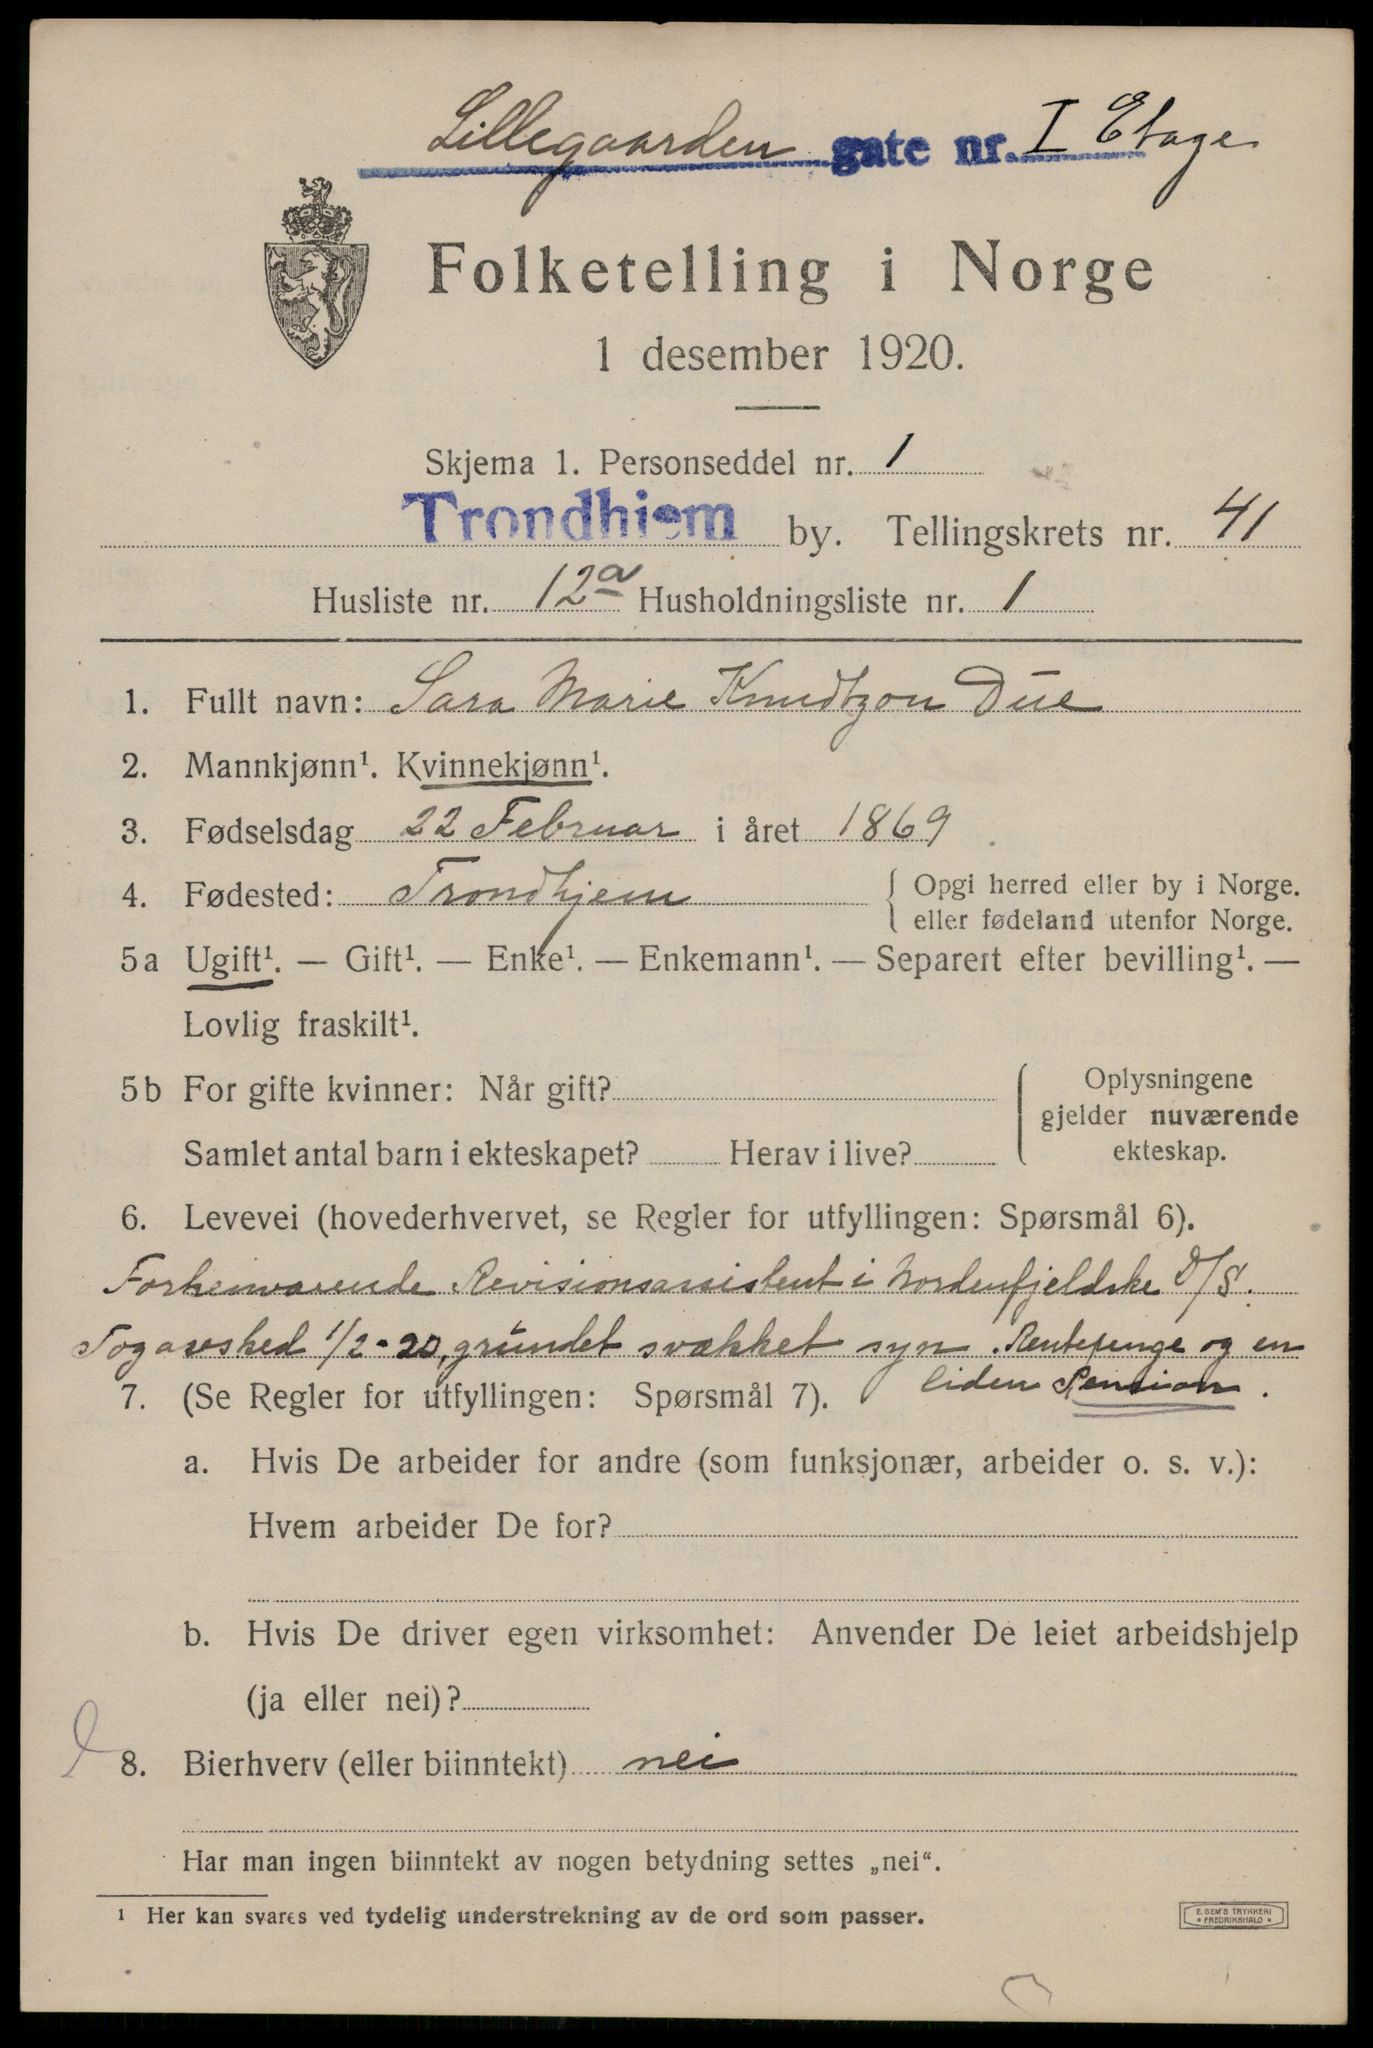 Lillegaarden gate nr. I Etage
Folketelling i Norge
1 desember 1920.
Skjema 1. Personseddel nr. 1
Trondhjem by. Tellingskrets nr. 41
Husliste nr. 12a Husholdningsliste nr. 1
1. Fullt navn: Sara Marie Knudtzon Düe
2. Mannkjønn¹. Kvinnekjønn¹.
3. Fødselsdag 22 Februar i året 1869
4. Fødested: Trondhjem { Opgi herred eller by i Norge.
eller fødeland utenfor Norge.
5a Ugift¹. — Gift¹. — Enke¹. — Enkemann¹. — Separert efter bevilling¹. —
Lovlig fraskilt¹.
5b For gifte kvinner: Når gift?
Samlet antal barn i ekteskapet? Herav i live?
Oplysningene
gjelder nuværende
ekteskap.
6. Levevei (hovederhvervet, se Regler for utfyllingen: Spørsmål 6).
Forhenværende Revisionsassistent i Nordenfjeldske D/S.
Tog avsked 1/2-20, grundet svækket syn. Rentepenge og en
liden Pension.
7. (Se Regler for utfyllingen: Spørsmål 7).
a. Hvis De arbeider for andre (som funksjonær, arbeider o. s. v.):
Hvem arbeider De for?
b. Hvis De driver egen virksomhet: Anvender De leiet arbeidshjelp
(ja eller nei)?
8. Bierhverv (eller biinntekt) nei
Har man ingen biinntekt av nogen betydning settes „nei“.
¹ Her kan svares ved tydelig understrekning av de ord som passer.
E. SEM'S TRYKKERI
• FREDRIKSHALD •